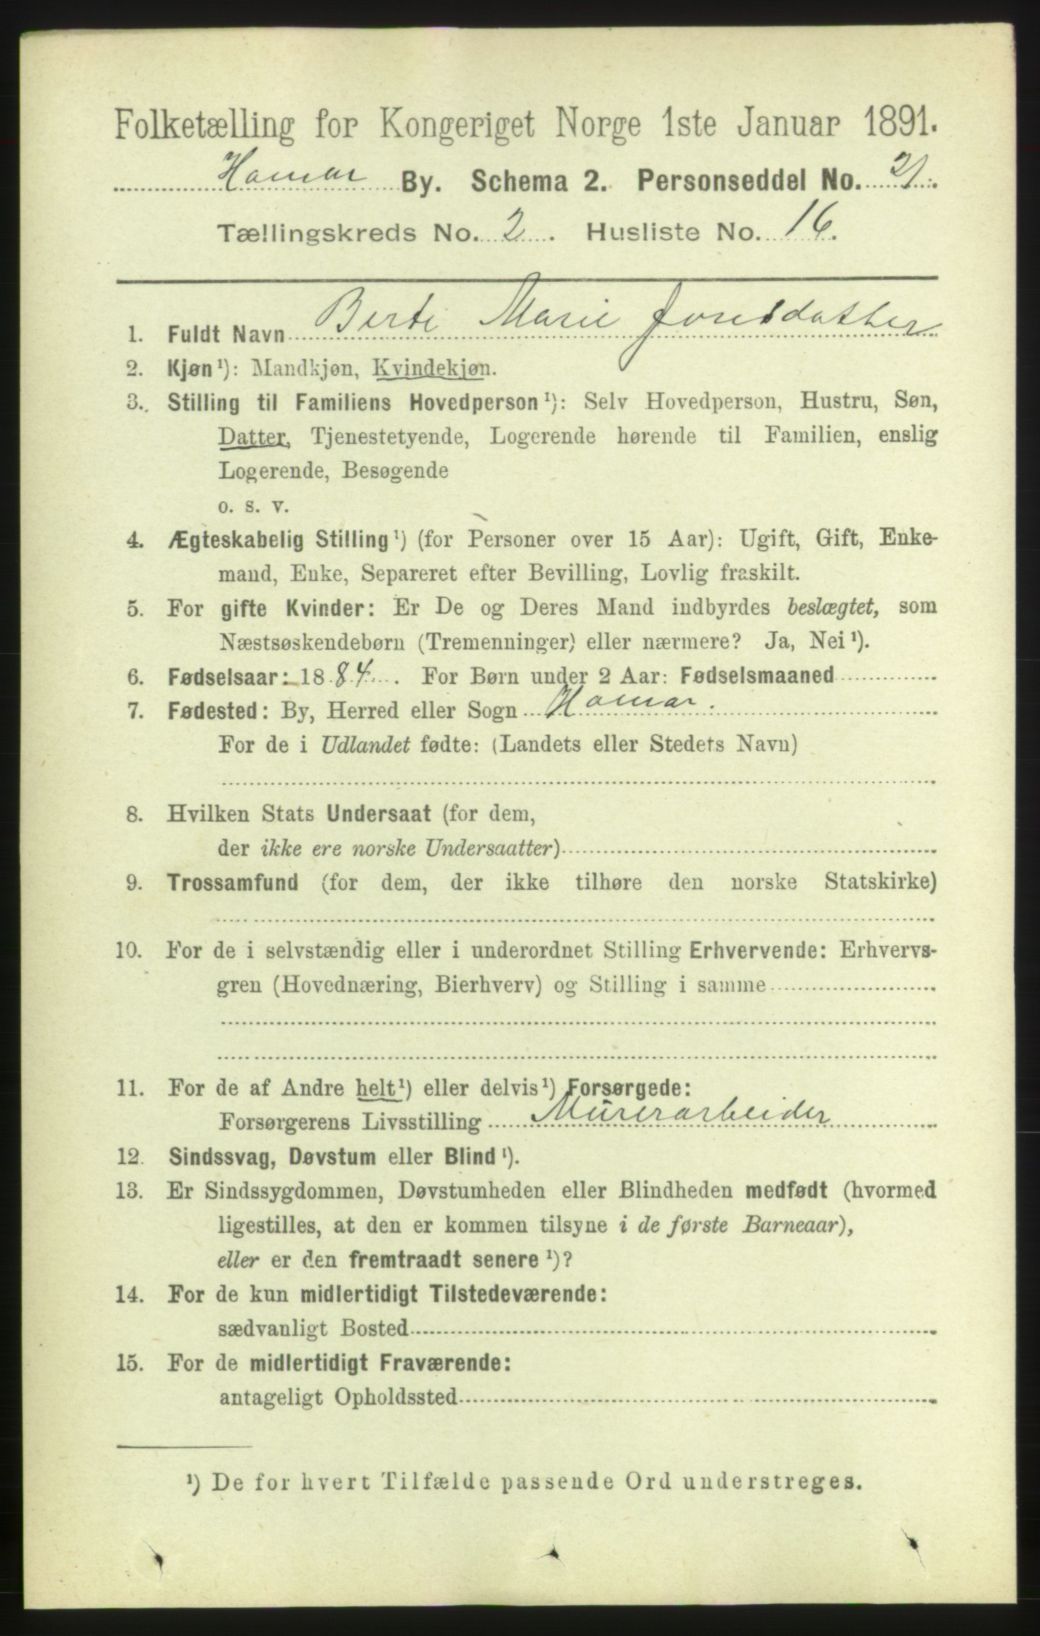 Folketælling for Kongeriget Norge 1ste Januar 1891.
Hamar By. Schema 2. Personseddel No. 21.
Tællingskreds No. 2. Husliste No. 16.
1. Fuldt Navn Berte Marie Jonsdatter
2. Kjøn¹): Mandkjøn, Kvindekjøn.
3. Stilling til Familiens Hovedperson¹): Selv Hovedperson, Hustru, Søn,
Datter, Tjenestetyende, Logerende hørende til Familien, enslig
Logerende, Besøgende
o. s. v.
4. Ægteskabelig Stilling¹) (for Personer over 15 Aar): Ugift, Gift, Enke-
mand, Enke, Separeret efter Bevilling, Lovlig fraskilt.
5. For gifte Kvinder: Er De og Deres Mand indbyrdes beslægtet, som
Næstsøskendebørn (Tremenninger) eller nærmere? Ja, Nei¹).
6. Fødselsaar: 1884. For Børn under 2 Aar: Fødselsmaaned
7. Fødested: By, Herred eller Sogn Hamar.
For de i Udlandet fødte: (Landets eller Stedets Navn)
8. Hvilken Stats Undersaat (for dem,
der ikke ere norske Undersaatter)
9. Trossamfund (for dem, der ikke tilhøre den norske Statskirke)
10. For de i selvstændig eller i underordnet Stilling Erhvervende: Erhvervs-
gren (Hovednæring, Bierhverv) og Stilling i samme
11. For de af Andre helt¹) eller delvis¹) Forsørgede:
Forsørgerens Livsstilling Murerarbeider
12. Sindssvag, Døvstum eller Blind¹).
13. Er Sindssygdommen, Døvstumheden eller Blindheden medfødt (hvormed
ligestilles, at den er kommen tilsyne i de første Barneaar),
eller er den fremtraadt senere¹)?
14. For de kun midlertidigt Tilstedeværende:
sædvanligt Bosted
15. For de midlertidigt Fraværende:
antageligt Opholdssted
¹) De for hvert Tilfælde passende Ord understreges.